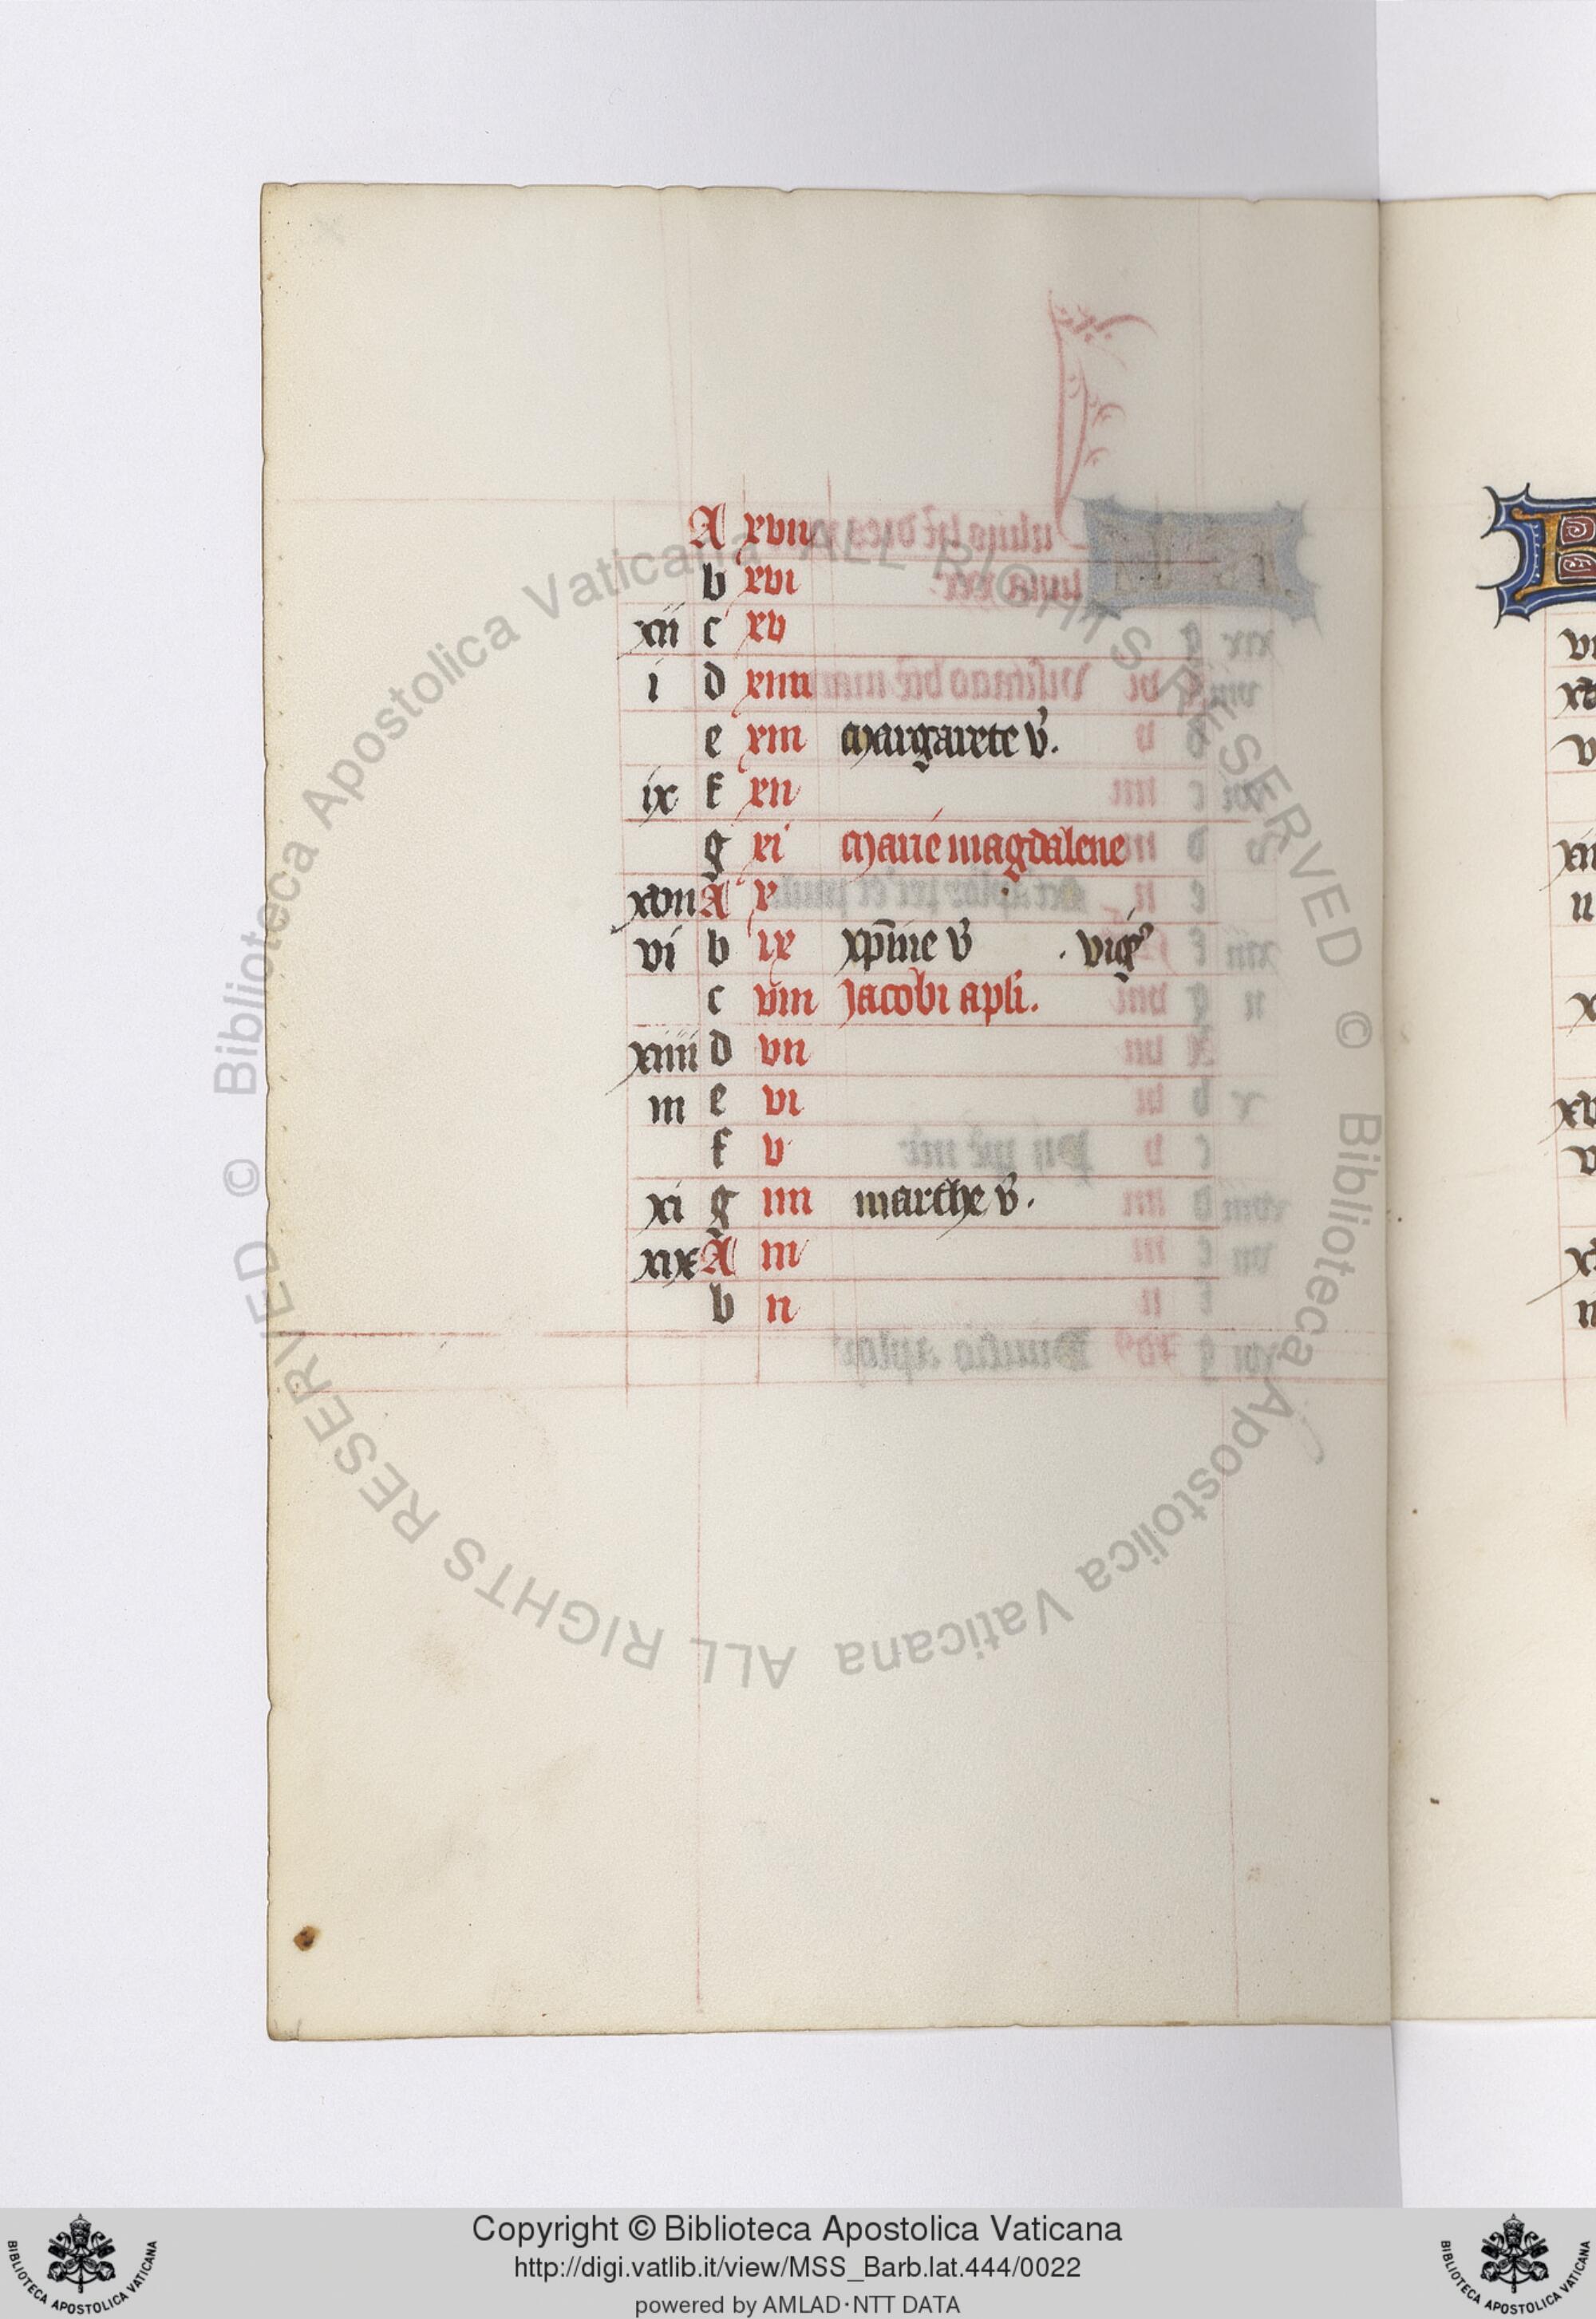 A xvii
b xvi
xii c xv
i d xiiii
e xiii Margarete v̄.
ix f xii
g xi Marie magdalene
xvii A x
vi b ix xp̄ine v̄ . vigꝰ
c viii Jacobi apl̄i.
xiiii d vii
iii e vi
f v
xi g iiii marthe v̄.
xix A iii
b ii
Copyright © Biblioteca Apostolica Vaticana
http://digi.vatlib.it/view/MSS_Barb.lat.444/0022
powered by AMLAD·NTT DATA
© Biblioteca Apostolica Vaticana ALL RIGHTS RESERVED
© Biblioteca Apostolica Vaticana ALL RIGHTS RESERVED
BIBLIOTECA APOSTOLICA VATICANA
BIBLIOTECA APOSTOLICA VATICANA